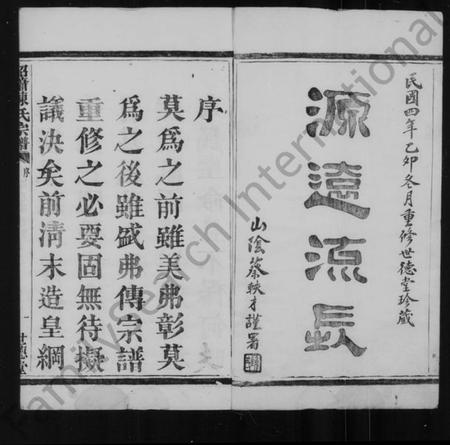 民國四年乙卯冬月重修世德堂珍藏
源遠流長
山陰蔡軼才謹署
序
莫爲之前雖美弗彰莫
爲之後雖盛弗傳宗譜
重修之必要固無待擬
議決矣前淸末造皇綱
陳氏宗譜
序
一
世德堂
FamilySearch International